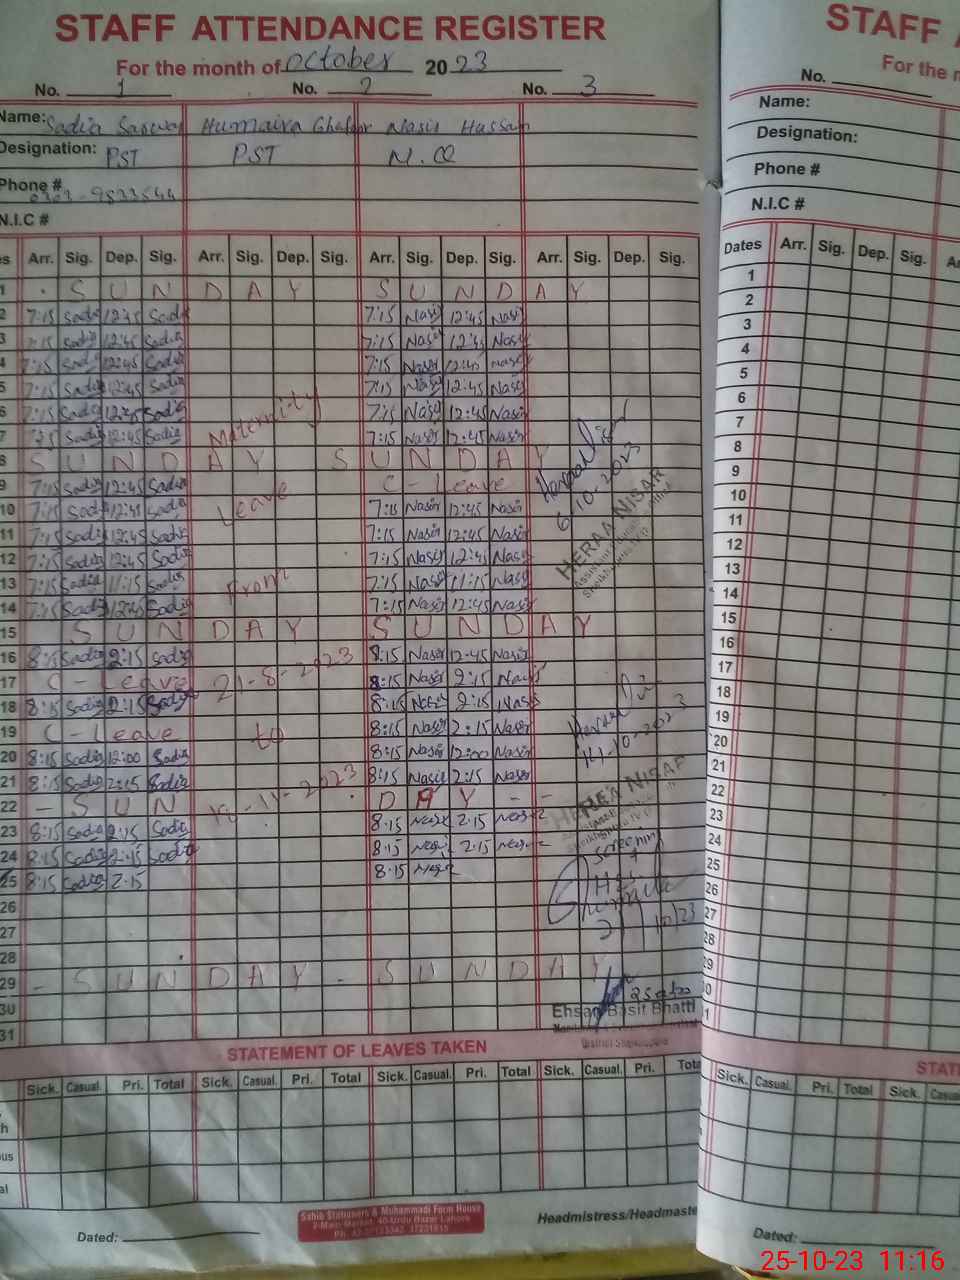 STAFF ATTENDANCE REGISTER
For the month of October 2023
No. 1 No. 2 No. 3
Name: Sadia Sarwar Humaira Ghafoor Nasir Hussain
Designation: PST PST N.Q
Phone #
N.I.C #
Arr. Sig. Dep. Sig. Arr. Sig. Dep. Sig. Arr. Sig. Dep. Sig. Arr. Sig. Dep. Sig.
1 S U N D A Y S U N D A Y
2 7:15 Sadia 12:45 Sadia 7:15 Nasir 12:45 Nasir
3 7:15 Sadia 12:45 Sadia 7:15 Nasir 12:45 Nasir
4 7:15 Sadia 12:45 Sadia 7:15 Nasir 12:45 Nasir
5 7:15 Sadia 12:45 Sadia 7:15 Nasir 12:45 Nasir
6 7:15 Sadia 12:45 Sadia Maternity 7:15 Nasir 12:45 Nasir
7 7:15 Sadia 12:45 Sadia 7:15 Nasir 12:45 Nasir
8 S U N D A Y S U N D A Y
9 7:15 Sadia 12:45 Sadia Leave C - Leave 6/10-2023
10 7:15 Sadia 12:45 Sadia 7:15 Nasir 12:45 Nasir
11 7:15 Sadia 12:45 Sadia 7:15 Nasir 12:45 Nasir HERAA NISAR
12 7:15 Sadia 12:45 Sadia 7:15 Nasir 12:45 Nasir
13 7:15 Sadia 11:15 Sadia From 7:15 Nasir 11:15 Nasir
14 7:15 Sadia 12:45 Sadia 7:15 Nasir 12:45 Nasir
15 S U N D A Y S U N D A Y
16 8:15 Sadia 2:15 Sadia 21-8-2023 8:15 Nasir 12:45 Nasir
17 C - Leave 8:15 Nasir 2:15 Nasir
18 8:15 Sadia 2:15 Sadia 8:15 Nasir 2:15 Nasir
19 C - Leave to 8:15 Nasir 2:15 Nasir
20 8:15 Sadia 12:00 Sadia 8:15 Nasir 12:00 Nasir
21 8:15 Sadia 2:15 Sadia 8:15 Nasir 2:15 Nasir
22 - S U N D A Y - - HERAA NISAR
23 8:15 Sadia 2:15 Sadia 8:15 Nasir 2:15 Nasir
24 8:15 Sadia 2:15 Sadia 8:15 Nasir 2:15 Nasir Screening
25 8:15 Sadia 2:15 8:15 Nasir
26
27
28
29 - S U N D A Y - S U N D A Y
30
31
Ehsan Basit Bhatti
STATEMENT OF LEAVES TAKEN
Sick. Casual. Pri. Total Sick. Casual. Pri. Total Sick. Casual. Pri. Total Sick. Casual. Pri. Total
Sahib Stationers & Muhammadi Form House
2-Main Market, 40-Urdu Bazar Lahore
Headmistress/Headmaste
Dated:
STAFF
For the
No.
Name:
Designation:
Phone #
N.I.C #
Dates Arr. Sig. Dep. Sig.
1
2
3
4
5
6
7
8
9
10
11
12
13
14
15
16
17
18
19
20
21
22
23
24
25
26
27
28
29
30
31
STAT
Sick. Casual. Pri. Total Sick.
Dated:
25-10-23 11:16